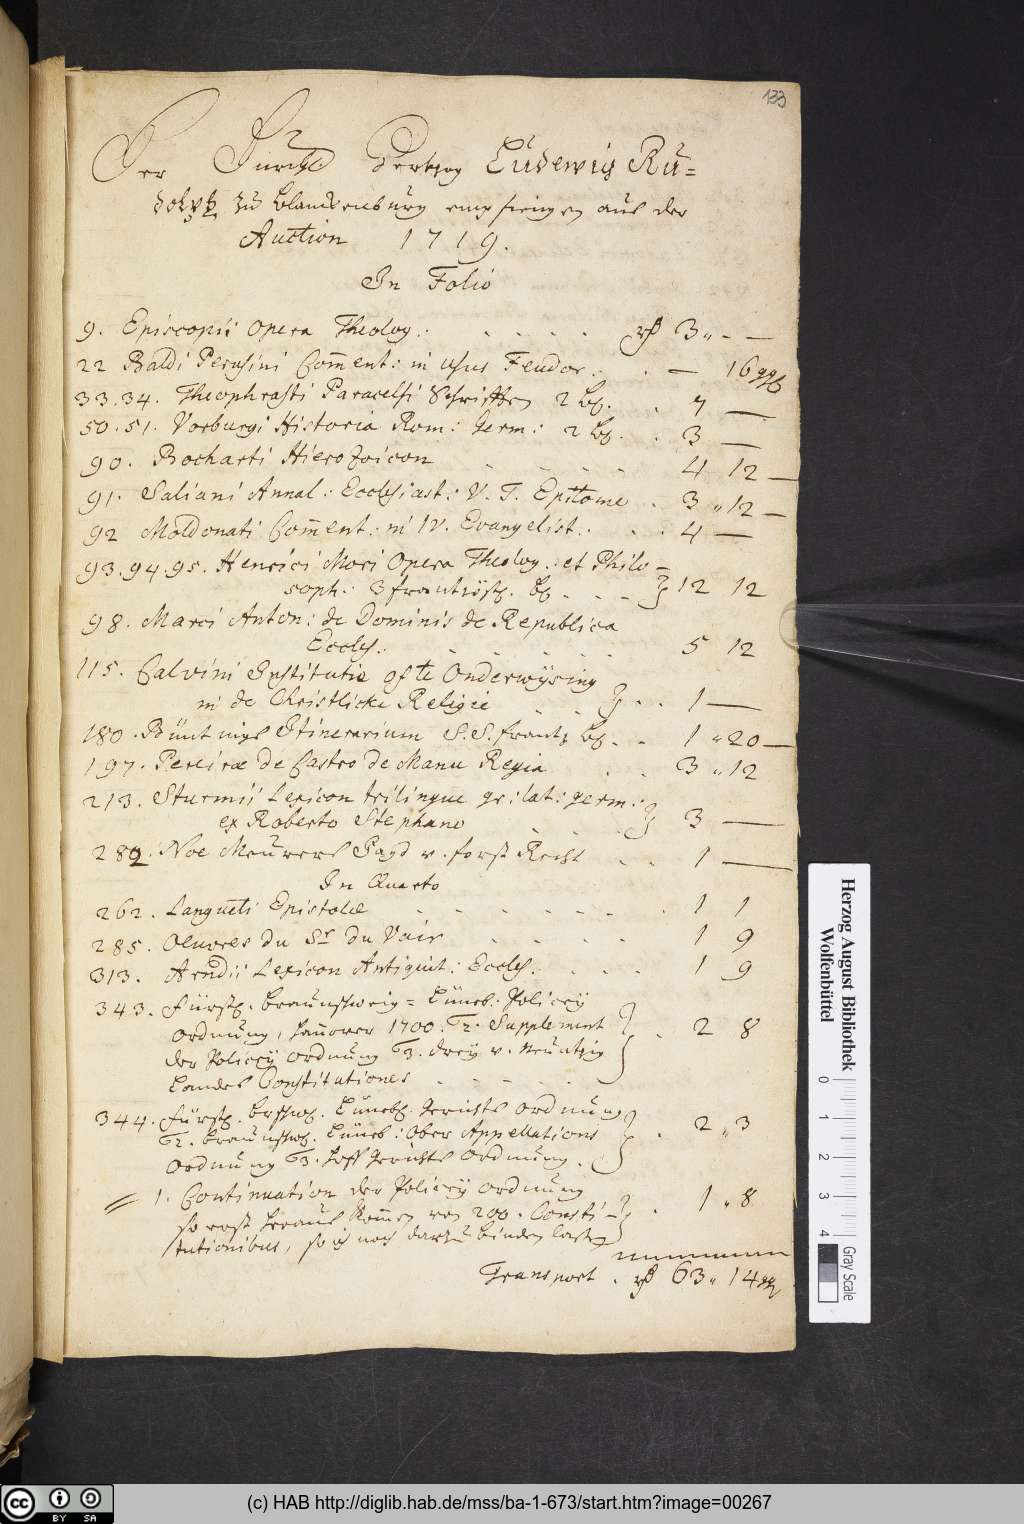 133
Der Durchl. Hertzog Ludewig Ru=
dolph zu Blanckenburg empfiengen aus der
Auction 1719.
In Folio
9. Episcopii Opera Theolog: . . . . . rthl 3 „ - —
22 Baldi Perusini Com̄ent: in usus Feudor: . . — 16 ggl
33.34. Theophrasti Paracelsi Schrifften 2 Bd. . . 7 —
50.51. Vorburgi Historia Rom: Germ: 2 Bd. . . 3 —
90. Bocharti Hierozoicon . . . . 4 12 —
91. Saliani Annal: Ecclesiast: V. T. Epitome . . 3 „ 12 —
92 Maldonati Com̄ent: in IV. Evangelist: . . . 4 —
93.94.95. Henrici Mori Opera Theolog: et Philo=
soph: 3 frantzösch. Bd. . . . 12 12
98. Marci Anton: de Dominis de Republica
Eccles. . . . . . 5 12
115. Calvini Institutie ofte Onderwÿsing
in de Christlicke Religie . . . . 1 —
180. Büntings Itinerarium S.S. frantz Bd. . . 1 „ 20 —
197. Pereiræ de Castro de Manu Regia . . 3 „ 12
213. Sturmii Lexicon trilingue gr: lat: germ:
ex Roberto Stephano . . . 3 —
282. Noe Meurers Jagd v. forst Recht . . 1 —
In Quarto
262. Langueti Epistolæ . . . . . . 1 1
285. Oeuvres du Sr du Vair . . . . 1 9
313. Arndii Lexicon Antiquit: Eccles. . . . . 1 9
343. Fürstl. Braunschweig= Lüneb: Policeÿ
Ordnung, Hannover 1700. 2. Supplement
der Policeÿ Ordnung 3. dreÿ v. Neuntzig . 2 8
Landes Constitutiones . . . . .
344. Fürstl. Brschw. Lünebl. Gerichts Ordnung
2. Braunschw. Lüneb: Ober Appellations . 2 „ 3
Ordnung 3. Hoff Gerichts Ordnung.
1. Continuation der Policeÿ Ordnung
so erst heraus kom̄en von 200. Consti= . 1 „ 8
tutionibus, so ich noch dartzu binden laßen
Transport . rthl 63 „ 14 ggl
Herzog August Bibliothek
Wolfenbüttel
0 1 2 3 4
Gray Scale
cc BY SA
(c) HAB http://diglib.hab.de/mss/ba-1-673/start.htm?image=00267